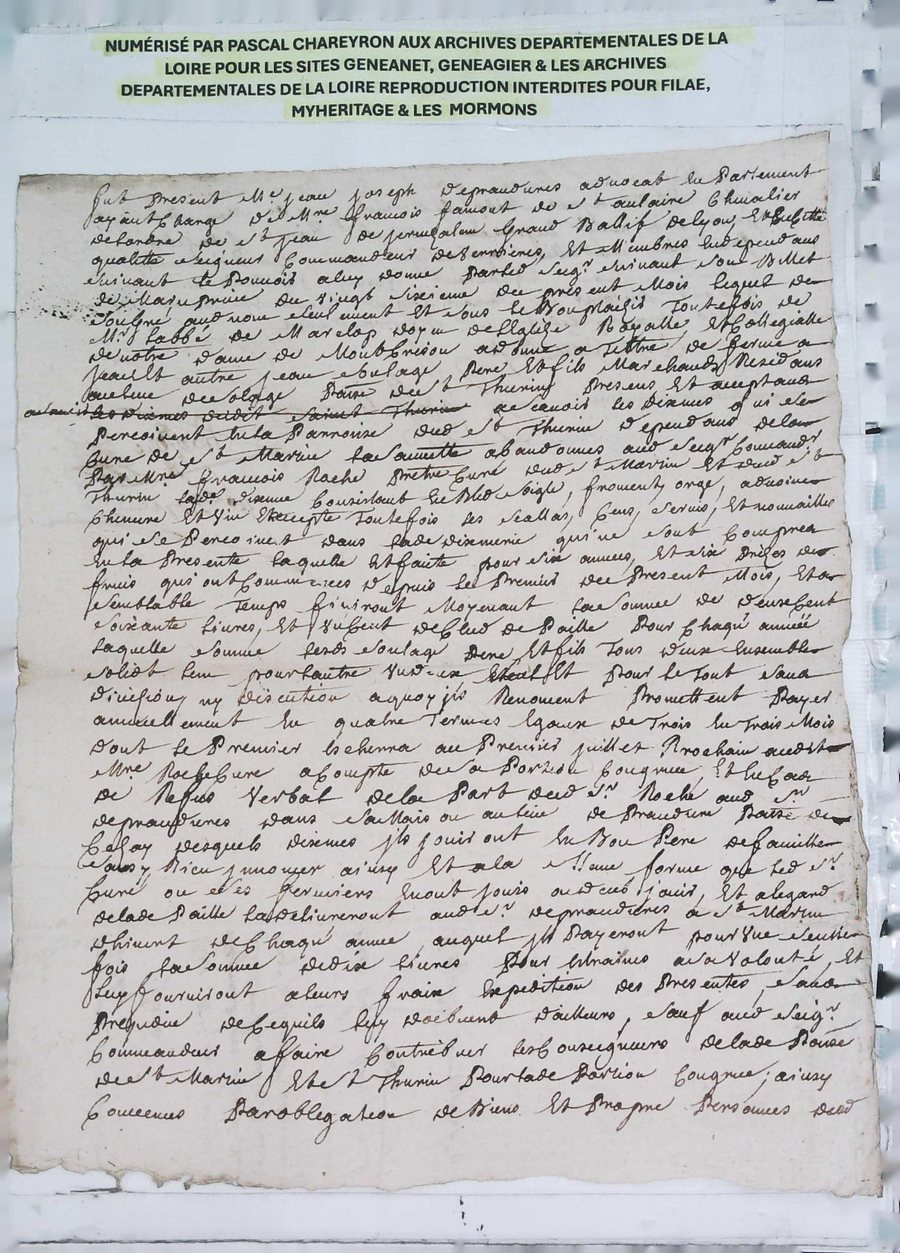 NUMÉRISÉ PAR PASCAL CHAREYRON AUX ARCHIVES DEPARTEMENTALES DE LA
LOIRE POUR LES SITES GENEANET, GENEAGIER & LES ARCHIVES
DEPARTEMENTALES DE LA LOIRE REPRODUCTION INTERDITES POUR FILAE,
MYHERITAGE & LES MORMONS
fut Present Me jean joseph depraudures advocat En Parlement
ayant Charge de Mre francois de St aulaire Chevalier
de Lordre de St jean de jerusalem Grand Ballif de Lyon, Et
qualitte seigneur Commandeur de Verrieres, Et Membres dependans
suivant le Pouvoir a luy donné Par led Seigr suivant son Billet
du vingt sixieme du present Mois lequel de
son gré, aud nom seulement Et sous le Bon plaizir Toutefois de
Mr Labbé de doyen de Leglize Royalle Et Collegialle
de notre dame de Montbrison a donné a Tittre de ferme a
jean Et autre jean soulage Pere Et fils Marchands Residans
Paisse de St Thurin Presens Et acceptans
les dixmes dudit Saint Thurin a scavoir les dixmes qui se
Percoivent En la Parroisse dud St Thurin dependans de la
Cure de St Martin abandonnés aud Seigr Commandr
Par Mre francois Roche Pretre Curé dud St Martin Et dud St
Thurin lad dixme Consistant En Bled Seigle, froment, orge, advoine
Chenvre Et Vin Excepté Toutefois les Cens, Servis, Et
qui se Percoivent dans lad dixmerie qui ne sont Compris
En la Presente laquelle Est faite pour six années, Et six Prizes de
fruis qui ont Commencées depuis le Premier du Present Mois, Et a
semblable Temps finiront Moyenant la somme de deux Cent
soixante livres, Et un Cent de de Paille Pour Chaqu année
laquelle somme lesd soulage Pere Et fils Tous deux Ensemble
solidt lun pour lautre Et Pour le Tout sans
division, ny discution a quoy jls Renoncent Promettent Payer
annuellement En quatre Termes Egaux de Trois En Trois Mois
dont le Premier Echerra au Premier juillet Prochain audit
Mre Roche Cure a Compte de sa Portion Congrue, Et En Cas
de Refus Verbal de la Part dud Sr Roche aud Sr
depraudures dans sa Maison au lieu de Praudure Paisse de
Cezay desquels dixmes jls jouiront En Bon Pere de famille
sans y Rien jnnover ainsy Et a la meme forme que led Sr
Curé ou ses fermiers En ont jouis ou deub jouir, Et a legard
de lad Paille la delivreront aud Sr depraudures a St Martin
dhivert de Chaqu année, auquel jls Payeront pour Une seulle
fois la somme de dix livres Pour Etraines a sa Volonté, Et
luy fourniront a leurs fraix Expedition des Presentes, sans
Prejudice de Cequils luy doibvent dailleurs, sauf aud Seigr
Commandeur a faire Contribuer les Conseigneurs de lad Paisse
de St Martin Et St Thurin Pour lad Portion Congrue; ainsy
Convenus Par obligation de Biens Et Propre Personnes dud